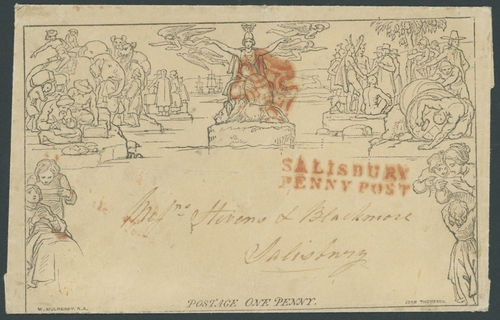 SALISBURY
PENNY POST
Messrs Stevens & Blackmore
Salisbury
POSTAGE ONE PENNY.
W. MULREADY, R.A.
JOHN THOMPSON